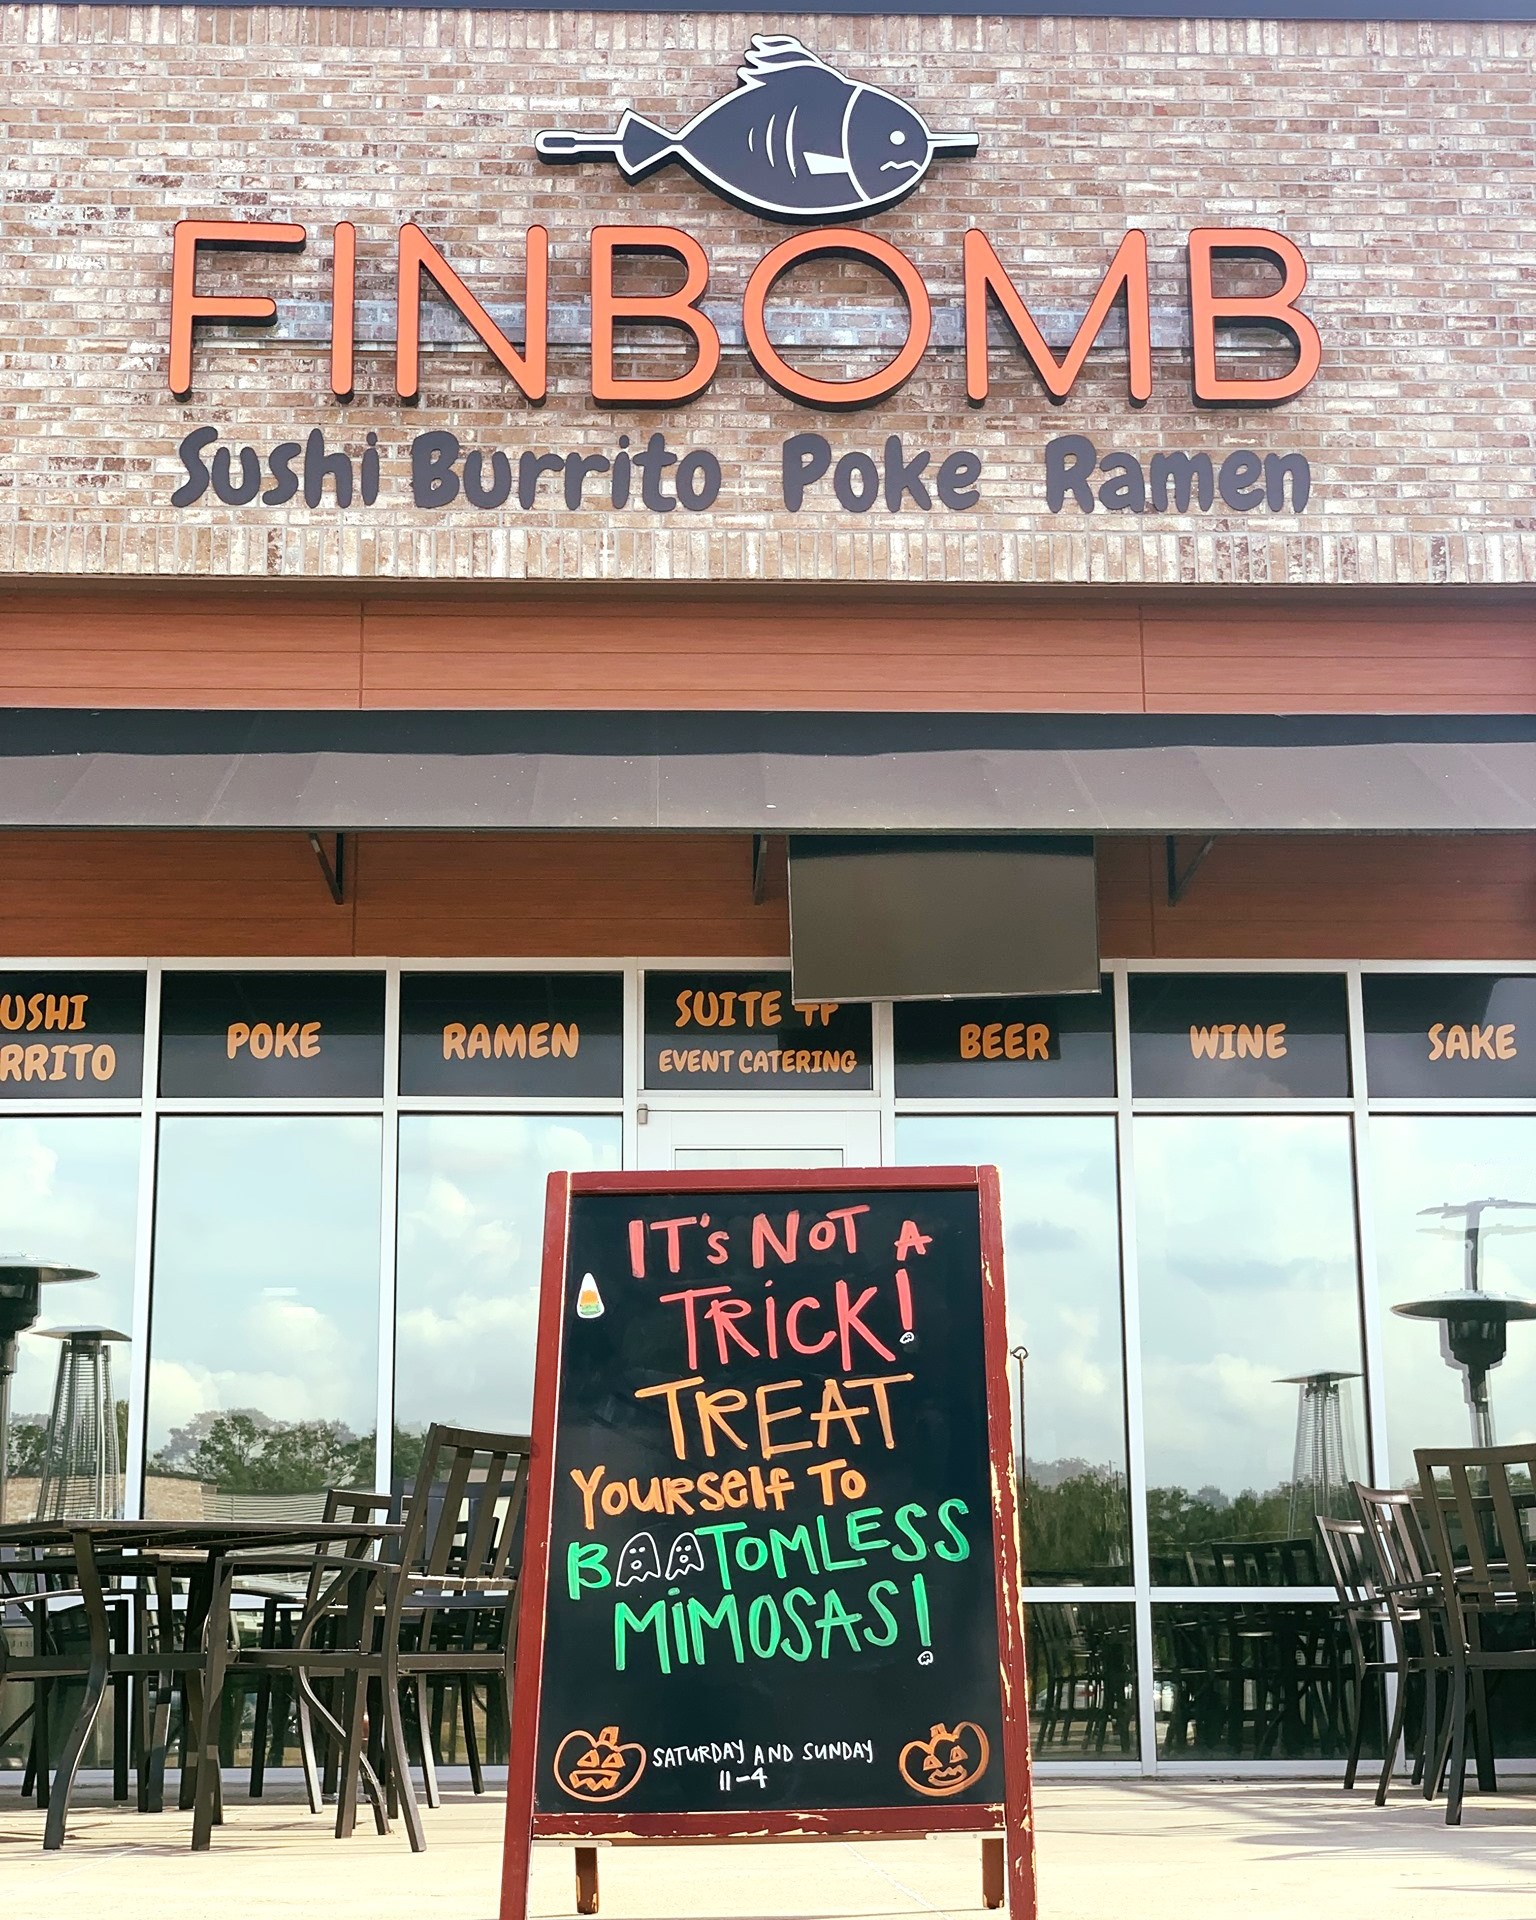 FINBOMB
Sushi Burrito Poke Ramen
USHI
RRITO
POKE
RAMEN
SUITE
EVENT CATERING
BEER
WINE
SAKE
IT'S NOT A
TRiCK!
TREAT
Yourself To
BOOTOMLESS
MiMOSAS!
SATURDAY AND SUNDAY
11-4